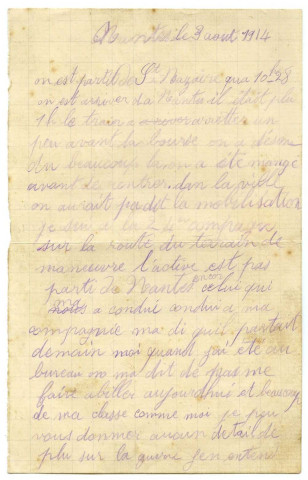 Nantes le 3 aout 1914
on est partit de St Nazaire qua 10h28
on est arriver a Nantes il était
1h le train a arreter un
peu avant la bourse on a
du beaucoup la on a eté mangé
avant de rentrer dan la ville
on aurait pas dit la mobilisation
je suis a la 24em compagnie
sur la route du terrain de
manoeuvre l'active est pas
parti de Nantes encore celui qui
ma conduit a ma
compagnie ma di quil partait
demain moi quand j'ai été au
bureau on ma dit de pas me
faire abiller aujourdhui et beaucoup
de ma classe comme moi je peu
vous donner aucun detail de
plus sur la guerre j'en entend